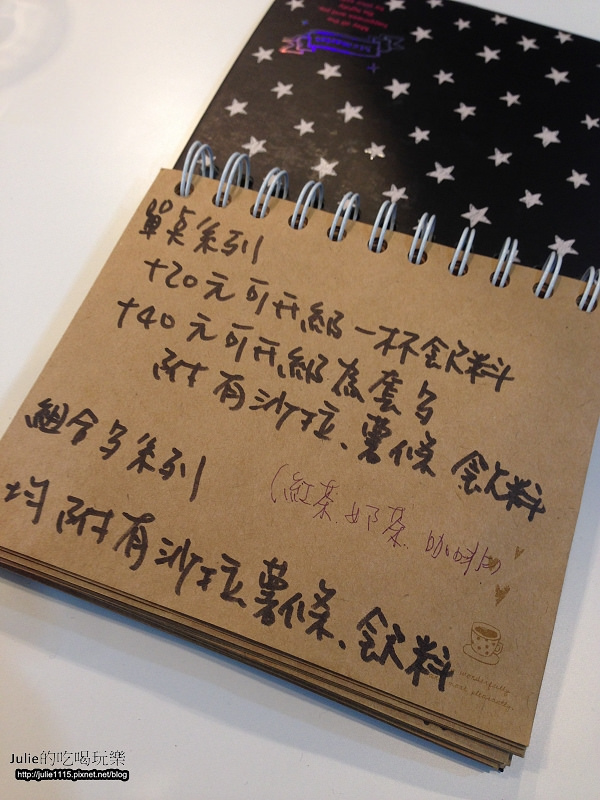 單点系列
+20元可升級一杯飲料
+40元可升級為套歺
附有沙拉、薯條、飲料
組合歺系列
(紅茶、奶茶、咖啡)
均附有沙拉、薯條、飲料
wonderfully
Julie的吃喝玩樂
http://julie1115.pixnet.net/blog